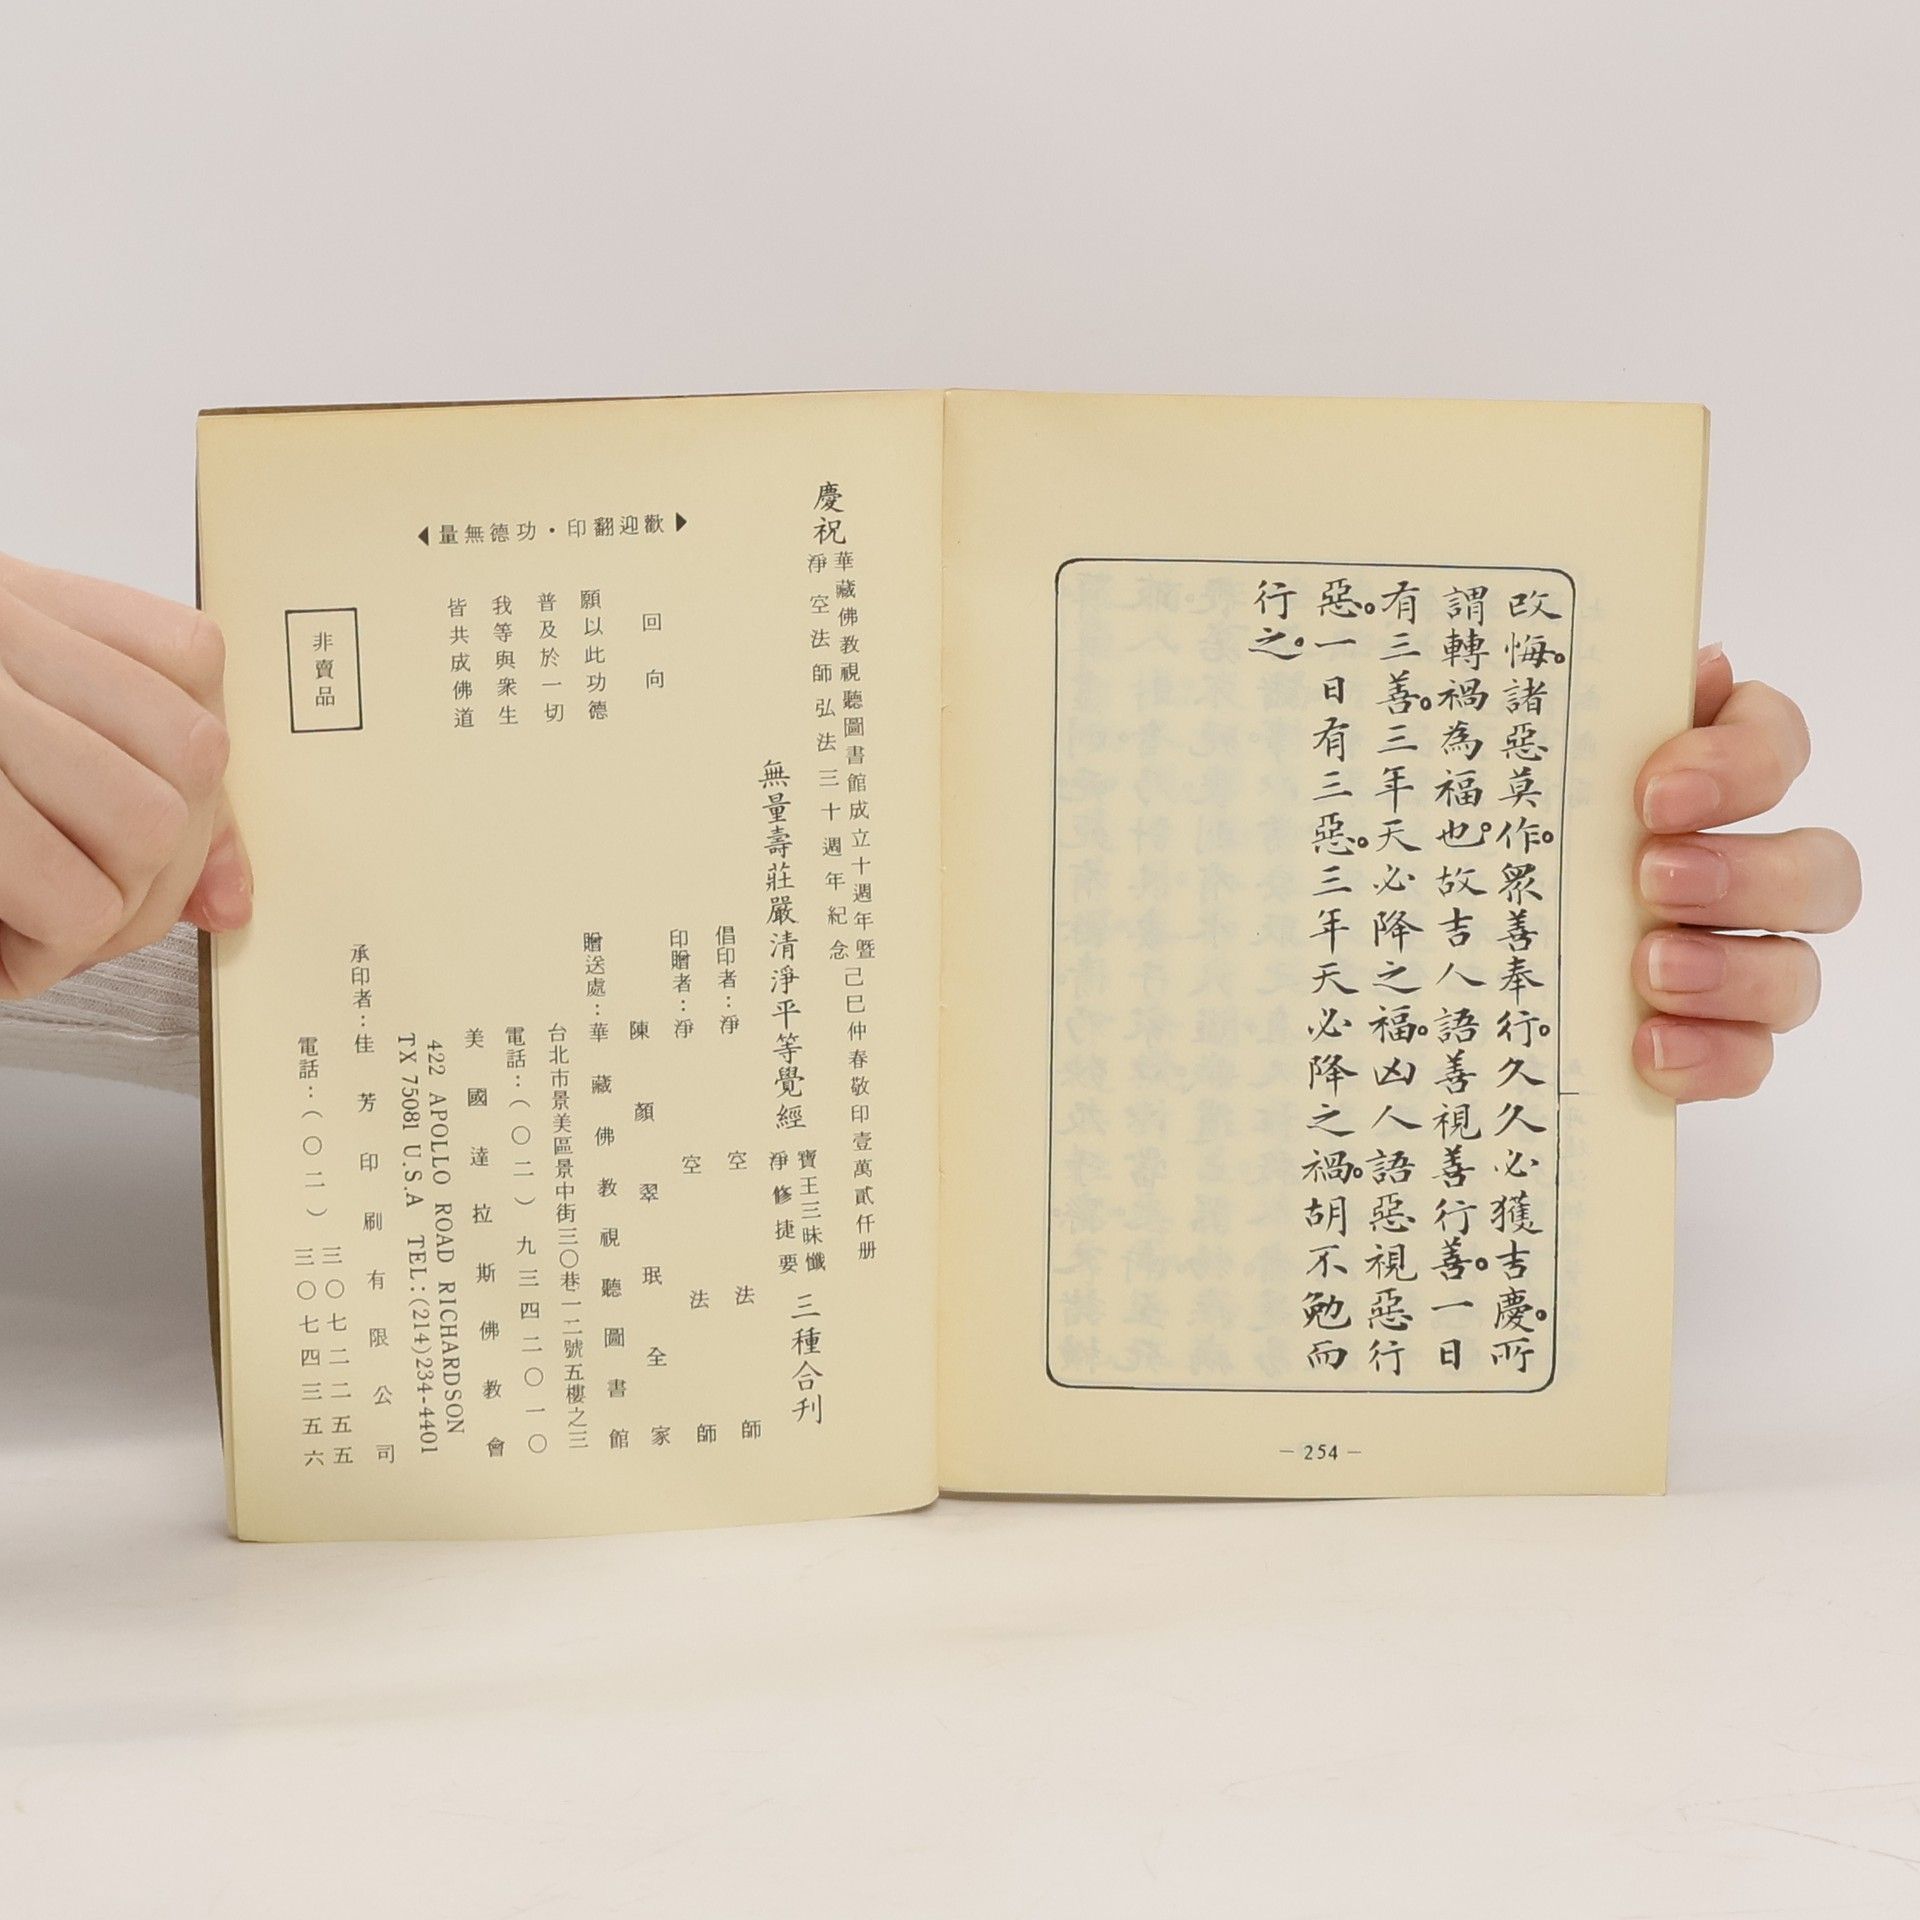 改悔。諸惡莫作。眾善奉行。久久必獲吉慶。所
謂轉禍為福也。故吉人語善視善行善。一日
有三善。三年天必降之福。凶人語惡視惡行
惡。一日有三惡。三年天必降之禍。胡不勉而
行之。
— 254 —
慶祝
華藏佛教視聽圖書館成立十週年暨
淨空法師弘法三十週年紀念
己巳仲春敬印壹萬貳仟册
無量壽莊嚴清淨平等覺經
寶王三昧懺
淨修捷要
三種合刊
倡印者：淨空法師
印贈者：淨空法師
陳顏翠珉全家
贈送處：華藏佛教視聽圖書館
台北市景美區景中街三〇巷一二號五樓之三
電話：（〇二）九三四二〇一〇
美國達拉斯佛教會
422 APOLLO ROAD RICHARDSON
TX 75081 U.S.A TEL:(214)234-4401
承印者：佳芳印刷有限公司
電話：（〇二）三〇七二二五五
三〇七四三五六
歡迎翻印・功德無量
回向
願以此功德
普及於一切
我等與衆生
皆共成佛道
非賣品